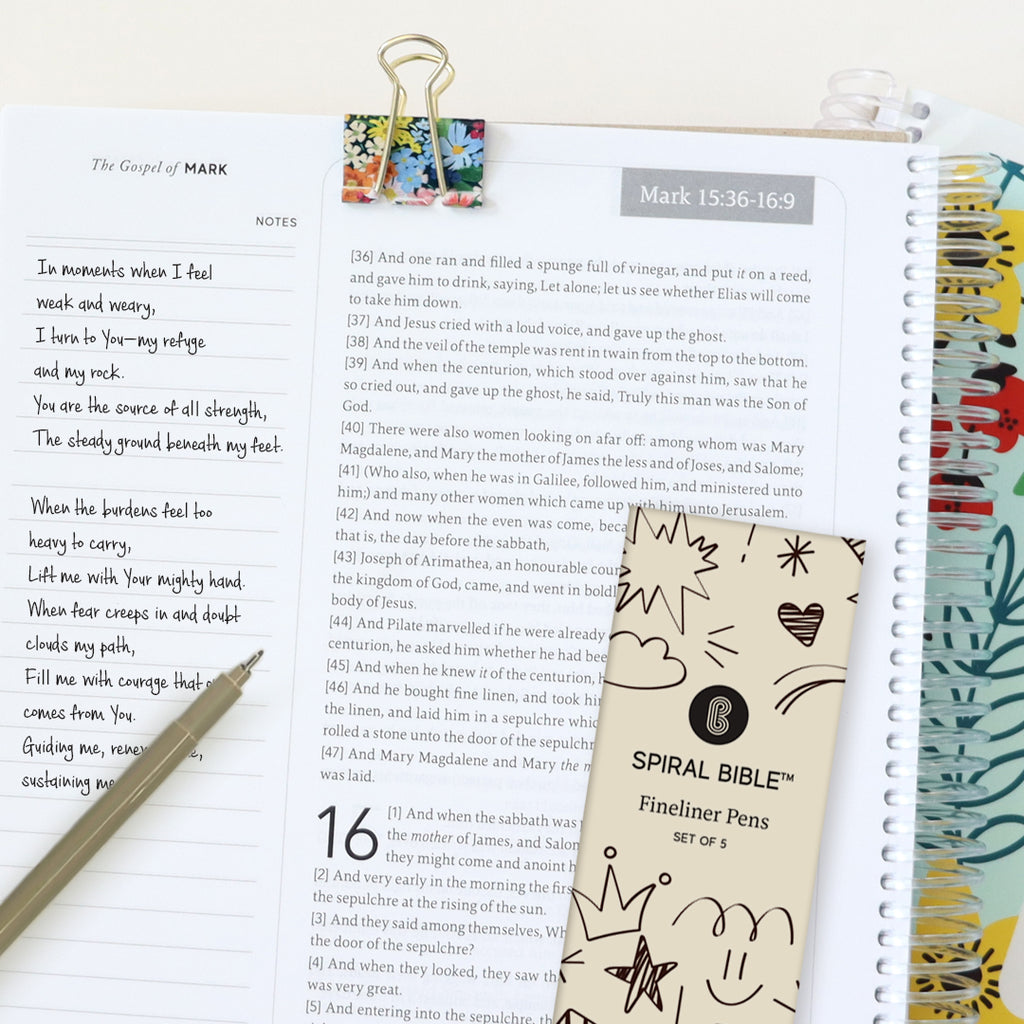 The Gospel of MARK
NOTES
In moments when I feel
weak and weary,
I turn to You—my refuge
and my rock.
You are the source of all strength,
The steady ground beneath my feet.
When the burdens feel too
heavy to carry,
Lift me with Your mighty hand.
When fear creeps in and doubt
clouds my path,
Fill me with courage that
comes from You.
Guiding me,
sustaining
Mark 15:36-16:9
[36] And one ran and filled a spunge full of vinegar, and put it on a reed,
and gave him to drink, saying, Let alone; let us see whether Elias will come
to take him down.
[37] And Jesus cried with a loud voice, and gave up the ghost.
[38] And the veil of the temple was rent in twain from the top to the bottom.
[39] And when the centurion, which stood over against him, saw that he
so cried out, and gave up the ghost, he said, Truly this man was the Son of
God.
[40] There were also women looking on afar off: among whom was Mary
Magdalene, and Mary the mother of James the less and of Joses, and Salome;
[41] (Who also, when he was in Galilee, followed him, and ministered unto
him;) and many other women which came up with him unto Jerusalem.
[42] And now when the even was come,
that is, the day before the sabbath,
[43] Joseph of Arimathea, an honourable
the kingdom of God, came, and went in
body of Jesus.
[44] And Pilate marvelled if he were already
centurion, he asked him whether he had
[45] And when he knew it of the centurion,
[46] And he bought fine linen, and took
the linen, and laid him in a sepulchre
rolled a stone unto the door of the
[47] And Mary Magdalene and Mary the
was laid.
16 [1] And when the sabbath was
the mother of James, and
they might come and anoint
[2] And very early in the morning the
the sepulchre at the rising of the sun.
[3] And they said among themselves,
the door of the sepulchre?
[4] And when they looked, they saw
was very great.
[5] And entering into the sepulchre,
B
SPIRAL BIBLE™
Fineliner Pens
SET OF 5